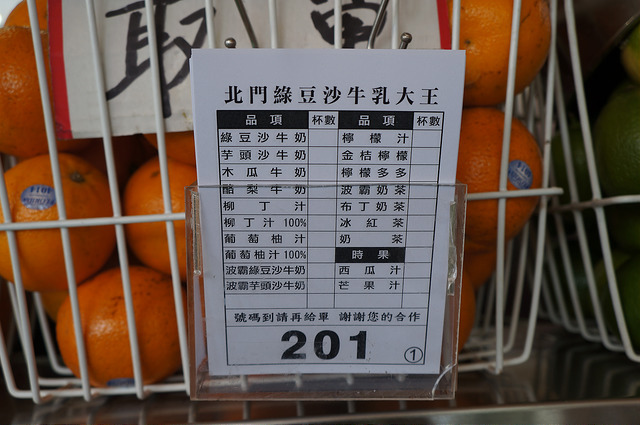 取
北門綠豆沙牛乳大王
品項 杯數 品項 杯數
綠豆沙牛奶 檸檬汁
芋頭沙牛奶 金桔檸檬
木瓜牛奶 檸檬多多
酪梨牛奶 波霸奶茶
柳丁汁 布丁奶茶
柳丁汁100% 冰紅茶
葡萄柚汁 奶茶
葡萄柚汁100% 時果
波霸綠豆沙牛奶 西瓜汁
波霸芋頭沙牛奶 芒果汁
號碼到請再給單 謝謝您的合作
201 ①